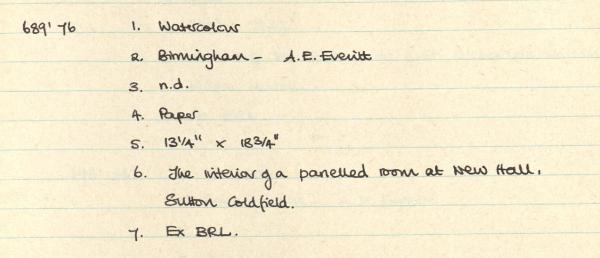 689'76 1. Watercolour
2. Birmingham - A.E. Everitt
3. n.d.
4. Paper
5. 13 1/4" x 18 3/4"
6. The interior of a panelled room at New Hall,
Sutton Coldfield.
7. Ex BRL.